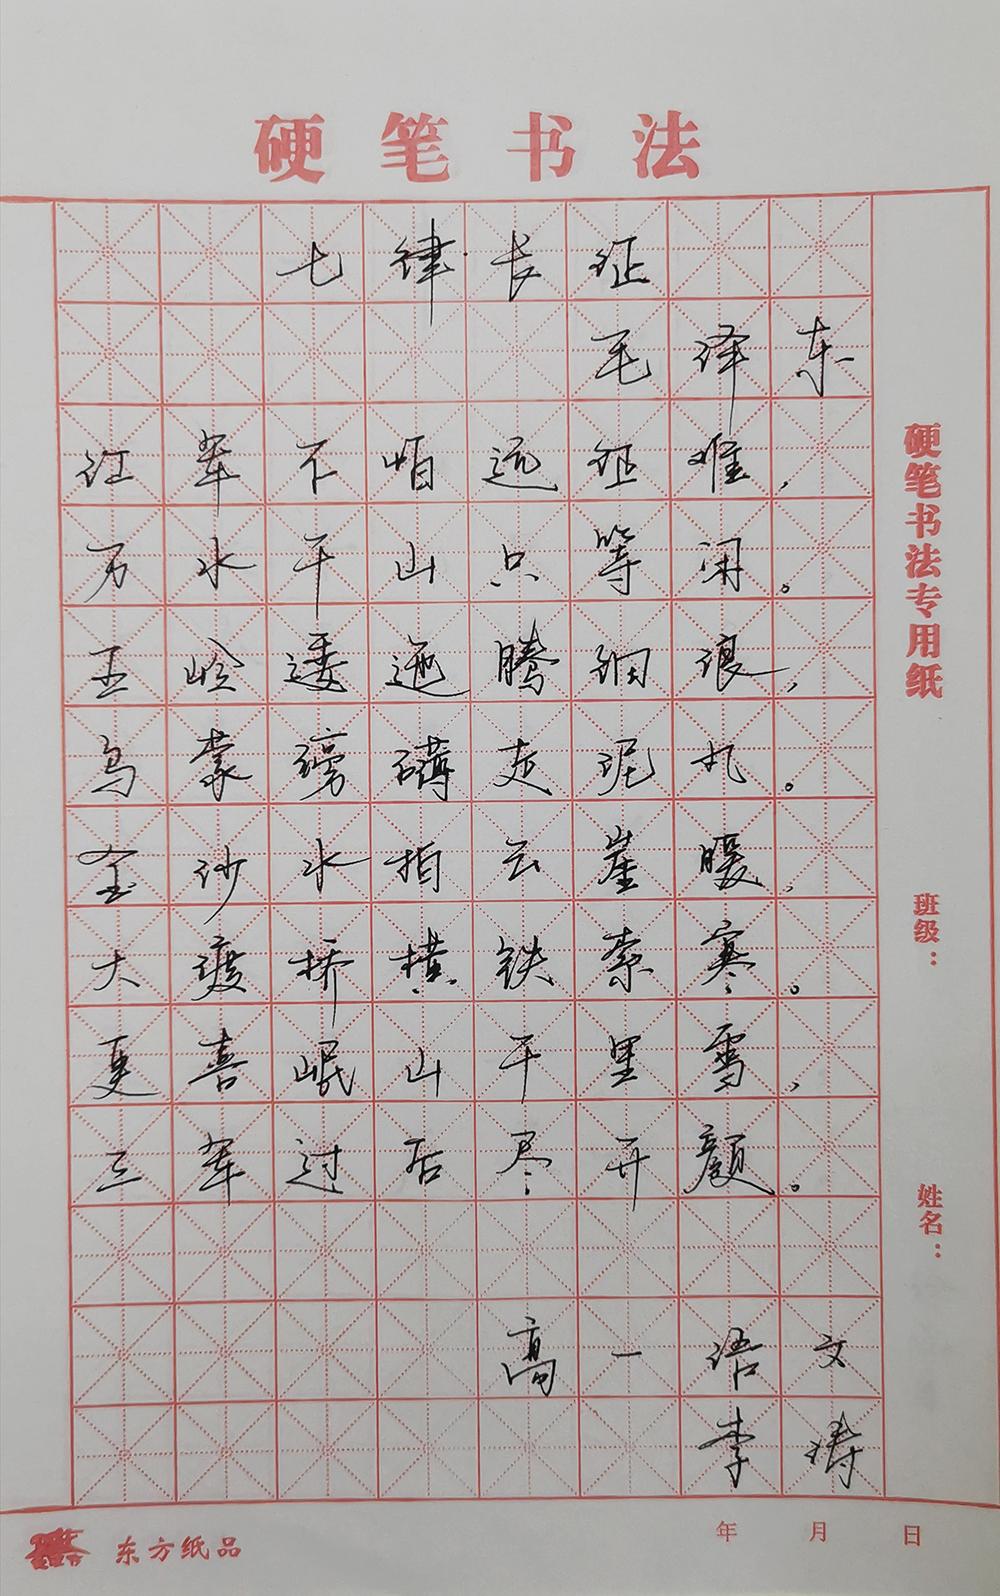 硬笔书法
七律·长征
毛泽东
红军不怕远征难，
万水千山只等闲。
五岭逶迤腾细浪，
乌蒙滂礴走泥丸。
金沙水拍云崖暖，
大渡桥横铁索寒。
更喜岷山千里雪，
三军过后尽开颜。
高一语文
李涛
硬笔书法专用纸
班级：
姓名：
东方纸品
年 月 日